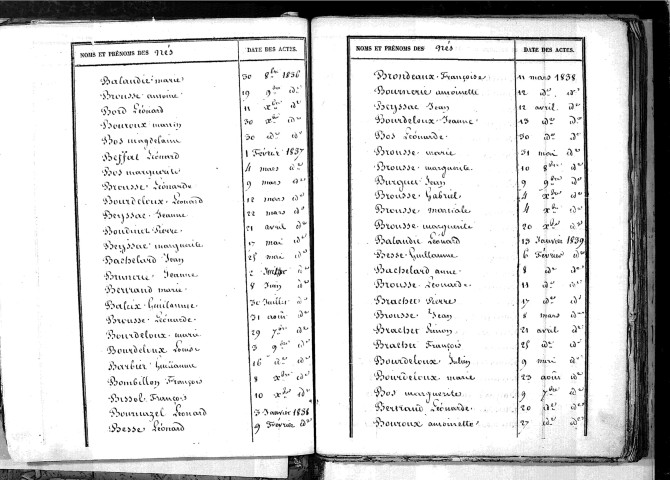 NOMS ET PRÉNOMS DES nés DATE DES ACTES.
Balandie marie 30 8bre 1836
Brousse antoine 19 9bre do
Bord Léonard 11 xbre do
Bouroux martin 30 xbre do
Bos magdelaine 30 do do
Beffat Léonard 1 Février 1837
Bos marguerite 4 mars do
Brousse Léonarde 9 mars do
Bourdeloux Léonard 12 mars do
Beyssac Jeanne 22 mars do
Boudinet Pierre 21 avril do
Beyssac marguerite 17 mai do
Bachelard Jean 25 mai do
Brunerie Jeanne 2 do
Bertrand marie 8 Juin do
Baleix Guillaume 30 Juillet do
Brousse Léonard 31 août do
Bourdeloux marie 29 7bre do
Bourdeloux Louise 3 9bre do
Barbier Guillaume 16 do do
Bombillon François 8 xbre do
Bissol François 10 xbre do
Bournazel Léonard 3 Janvier 1838
Besse Léonard 9 Février do
NOMS ET PRÉNOMS DES nés DATE DES ACTES.
Brondeaux Françoise 11 mars 1838
Bournerie antoinette 12 do do
Beyssac Jean 12 avril do
Bourdeloux Jeanne 13 do do
Bos Léonarde 30 do do
Brousse marie 31 mai do
Brousse marguerite 10 8bre do
Burguet Jean 9 9bre do
Brousse Gabriel 4 xbre do
Brousse martiale 4 xbre do
Brousse marguerite 20 xbre do
Balandie Léonard 13 Janvier 1839
Besse Guillaume 6 Février do
Bachelard anne 8 do do
Brousse Léonarde 11 do do
Brachet Pierre 17 do do
Brousse Jean 8 mars do
Brachet Simon 21 avril do
Brachet François 25 do do
Bourdeloux Julien 9 mai do
Bourdeloux marie 23 août do
Bos marguerite 9 7bre do
Bertrand Léonarde 20 do do
Bouroux antoinette 27 do do